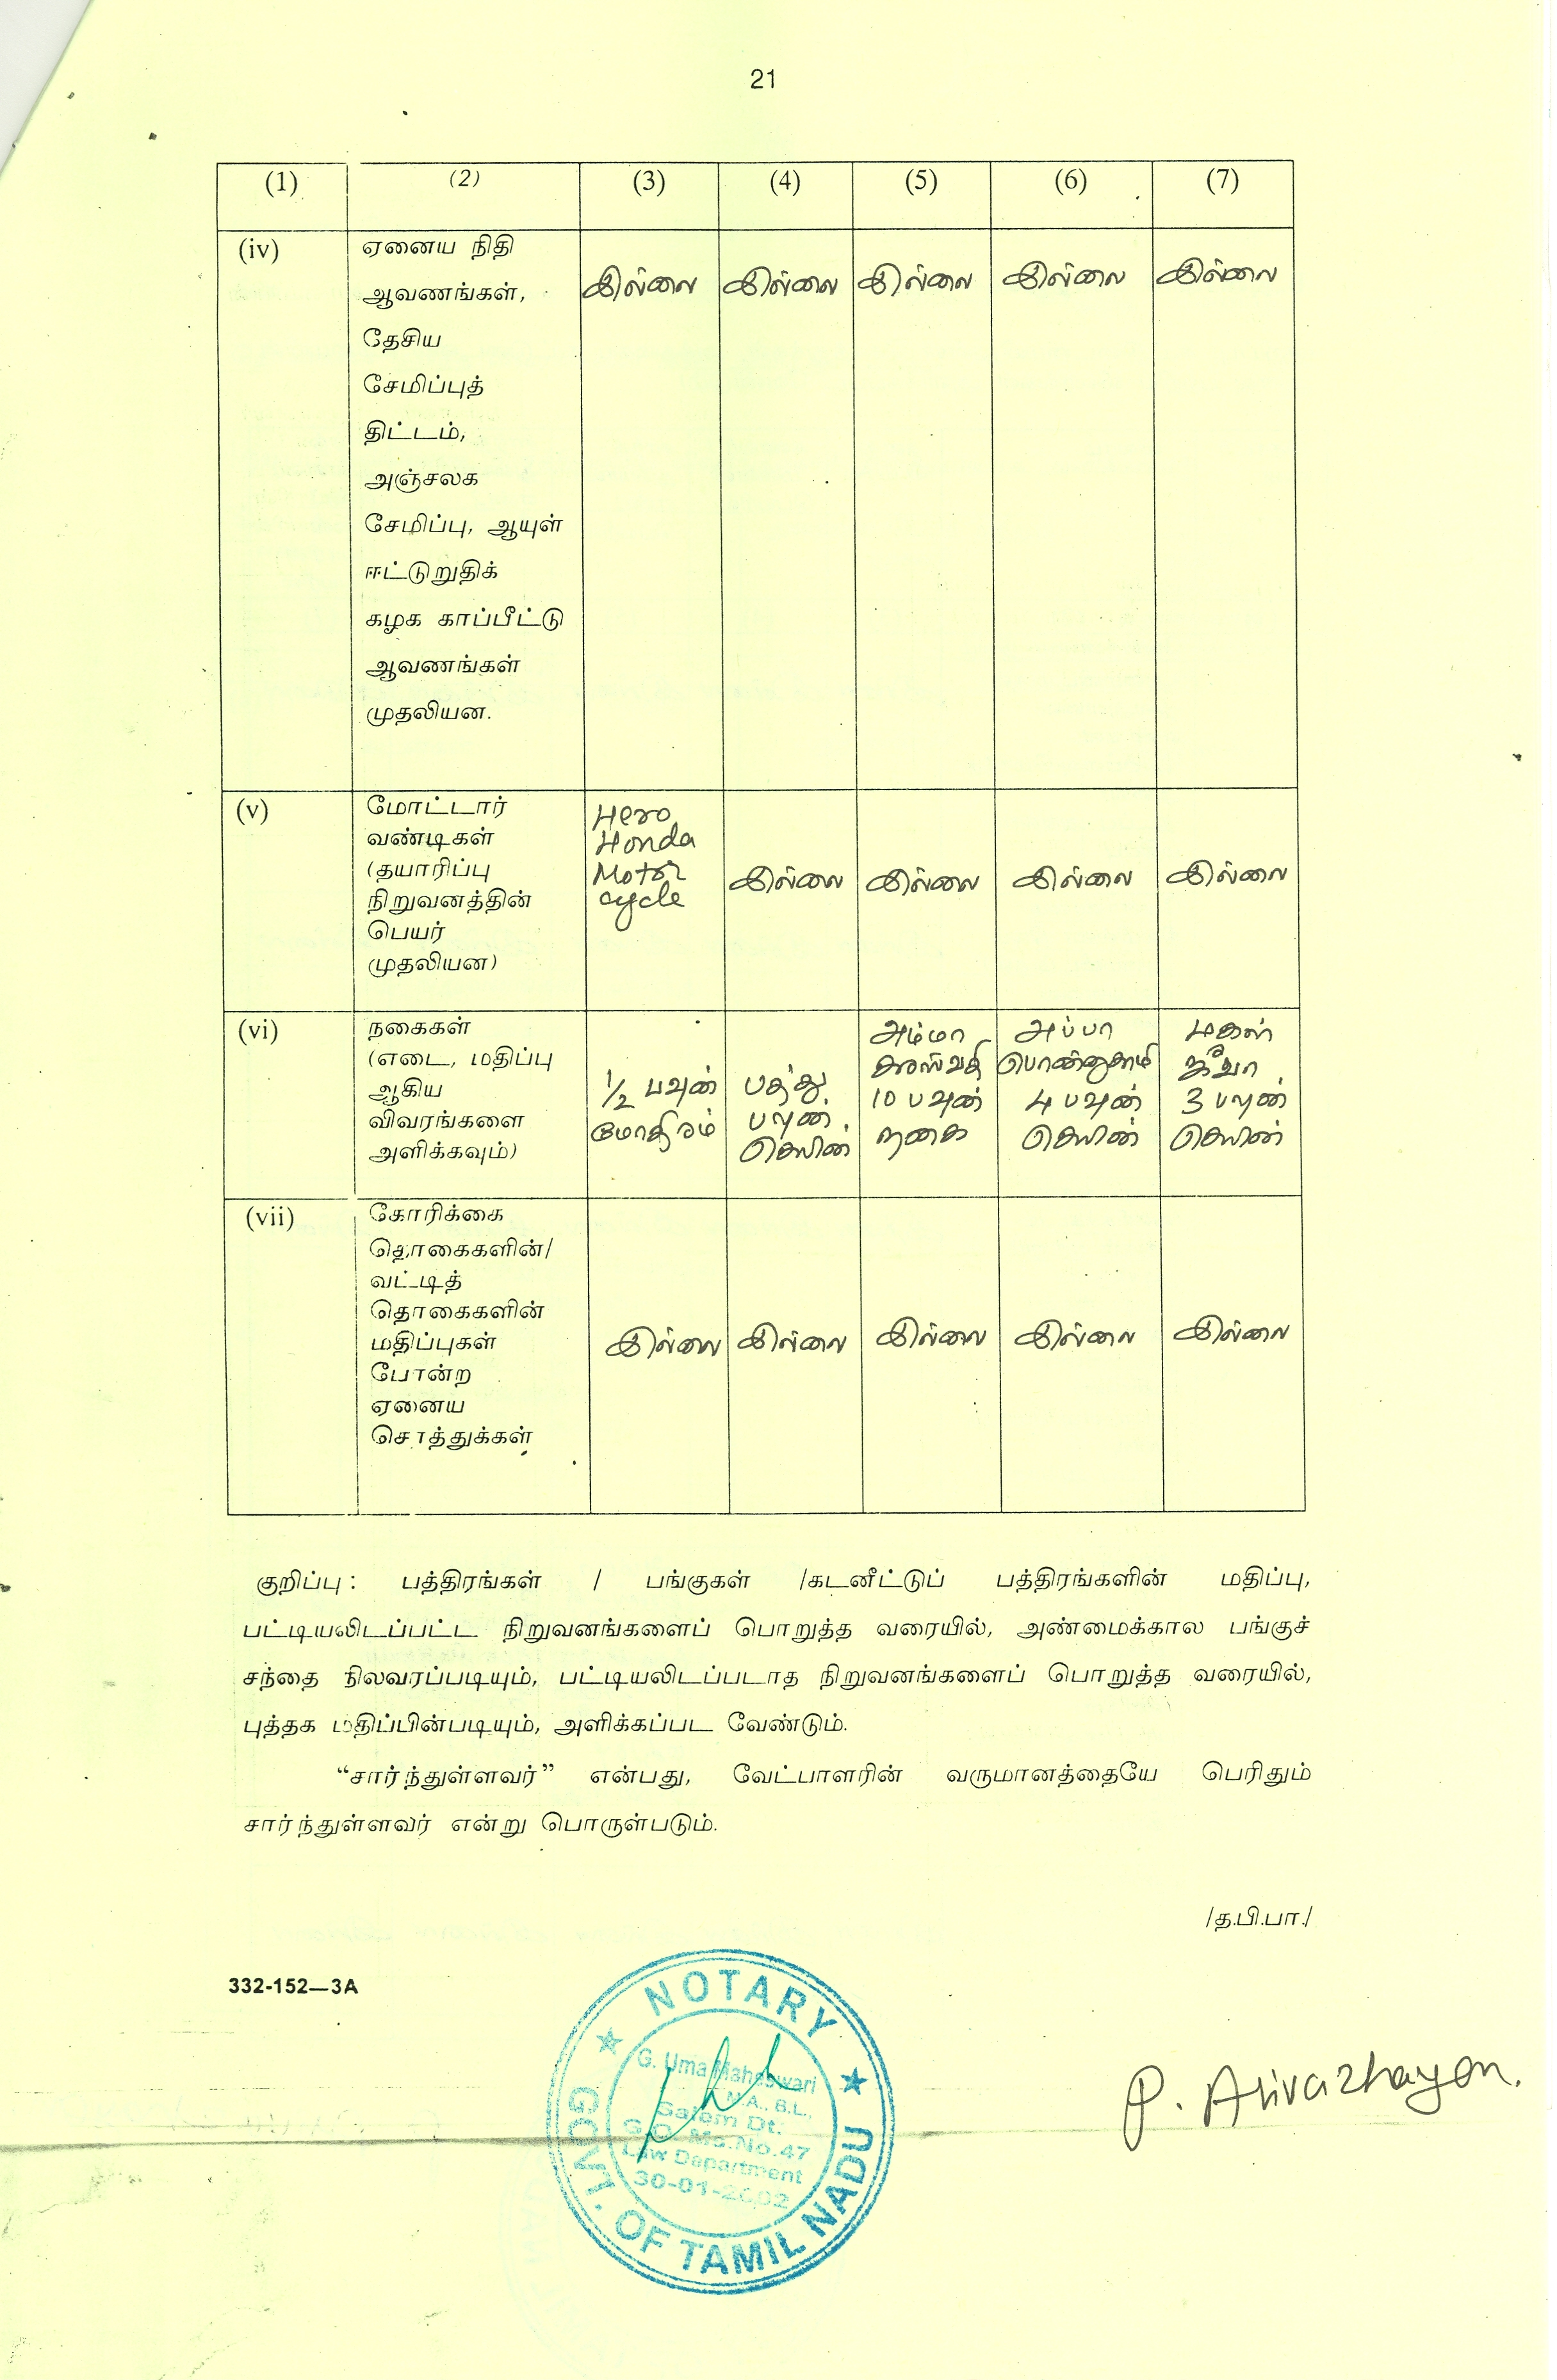 21
(1) (2) (3) (4) (5) (6) (7)
(iv) ஏனைய நிதி
ஆவணங்கள்,
தேசிய
சேமிப்புத்
திட்டம்,
அஞ்சலக
சேமிப்பு, ஆயுள்
ஈட்டுறுதிக்
கழக காப்பீட்டு
ஆவணங்கள்
முதலியன.
இல்லை இல்லை இல்லை இல்லை இல்லை
(v) மோட்டார்
வண்டிகள்
(தயாரிப்பு
நிறுவனத்தின்
பெயர்
முதலியன)
Hero
Honda
Motor
cycle
இல்லை இல்லை இல்லை இல்லை
(vi) நகைகள்
(எடை, மதிப்பு
ஆகிய
விவரங்களை
அளிக்கவும்)
1/2 பவுன்
மோதிரம்
பத்து
பவுன்
செயின்
அம்மா
சரஸ்வதி
10 பவுன்
நகை
அப்பா
பொன்னுசாமி
4 பவுன்
செயின்
மகள்
ஜீவா
3 பவுன்
செயின்
(vii) கோரிக்கை
தொகைகளின்/
வட்டித்
தொகைகளின்
மதிப்புகள்
போன்ற
ஏனைய
சொத்துக்கள்
இல்லை இல்லை இல்லை இல்லை இல்லை
குறிப்பு : பத்திரங்கள் / பங்குகள் /கடனீட்டுப் பத்திரங்களின் மதிப்பு,
பட்டியலிடப்பட்ட நிறுவனங்களைப் பொறுத்த வரையில், அண்மைக்கால பங்குச்
சந்தை நிலவரப்படியும், பட்டியலிடப்படாத நிறுவனங்களைப் பொறுத்த வரையில்,
புத்தக மதிப்பின்படியும், அளிக்கப்பட வேண்டும்.
“சார்ந்துள்ளவர்” என்பது, வேட்பாளரின் வருமானத்தையே பெரிதும்
சார்ந்துள்ளவர் என்று பொருள்படும்.
/த.பி.பா./
332-152—3A
NOTARY
G. Uma Maheswari
M.A., B.L.,
Salem Dt.
G.O. Ms.No.47
Law Department
30-01-2002
GOVT. OF TAMIL NADU
P. Arivazhagan.